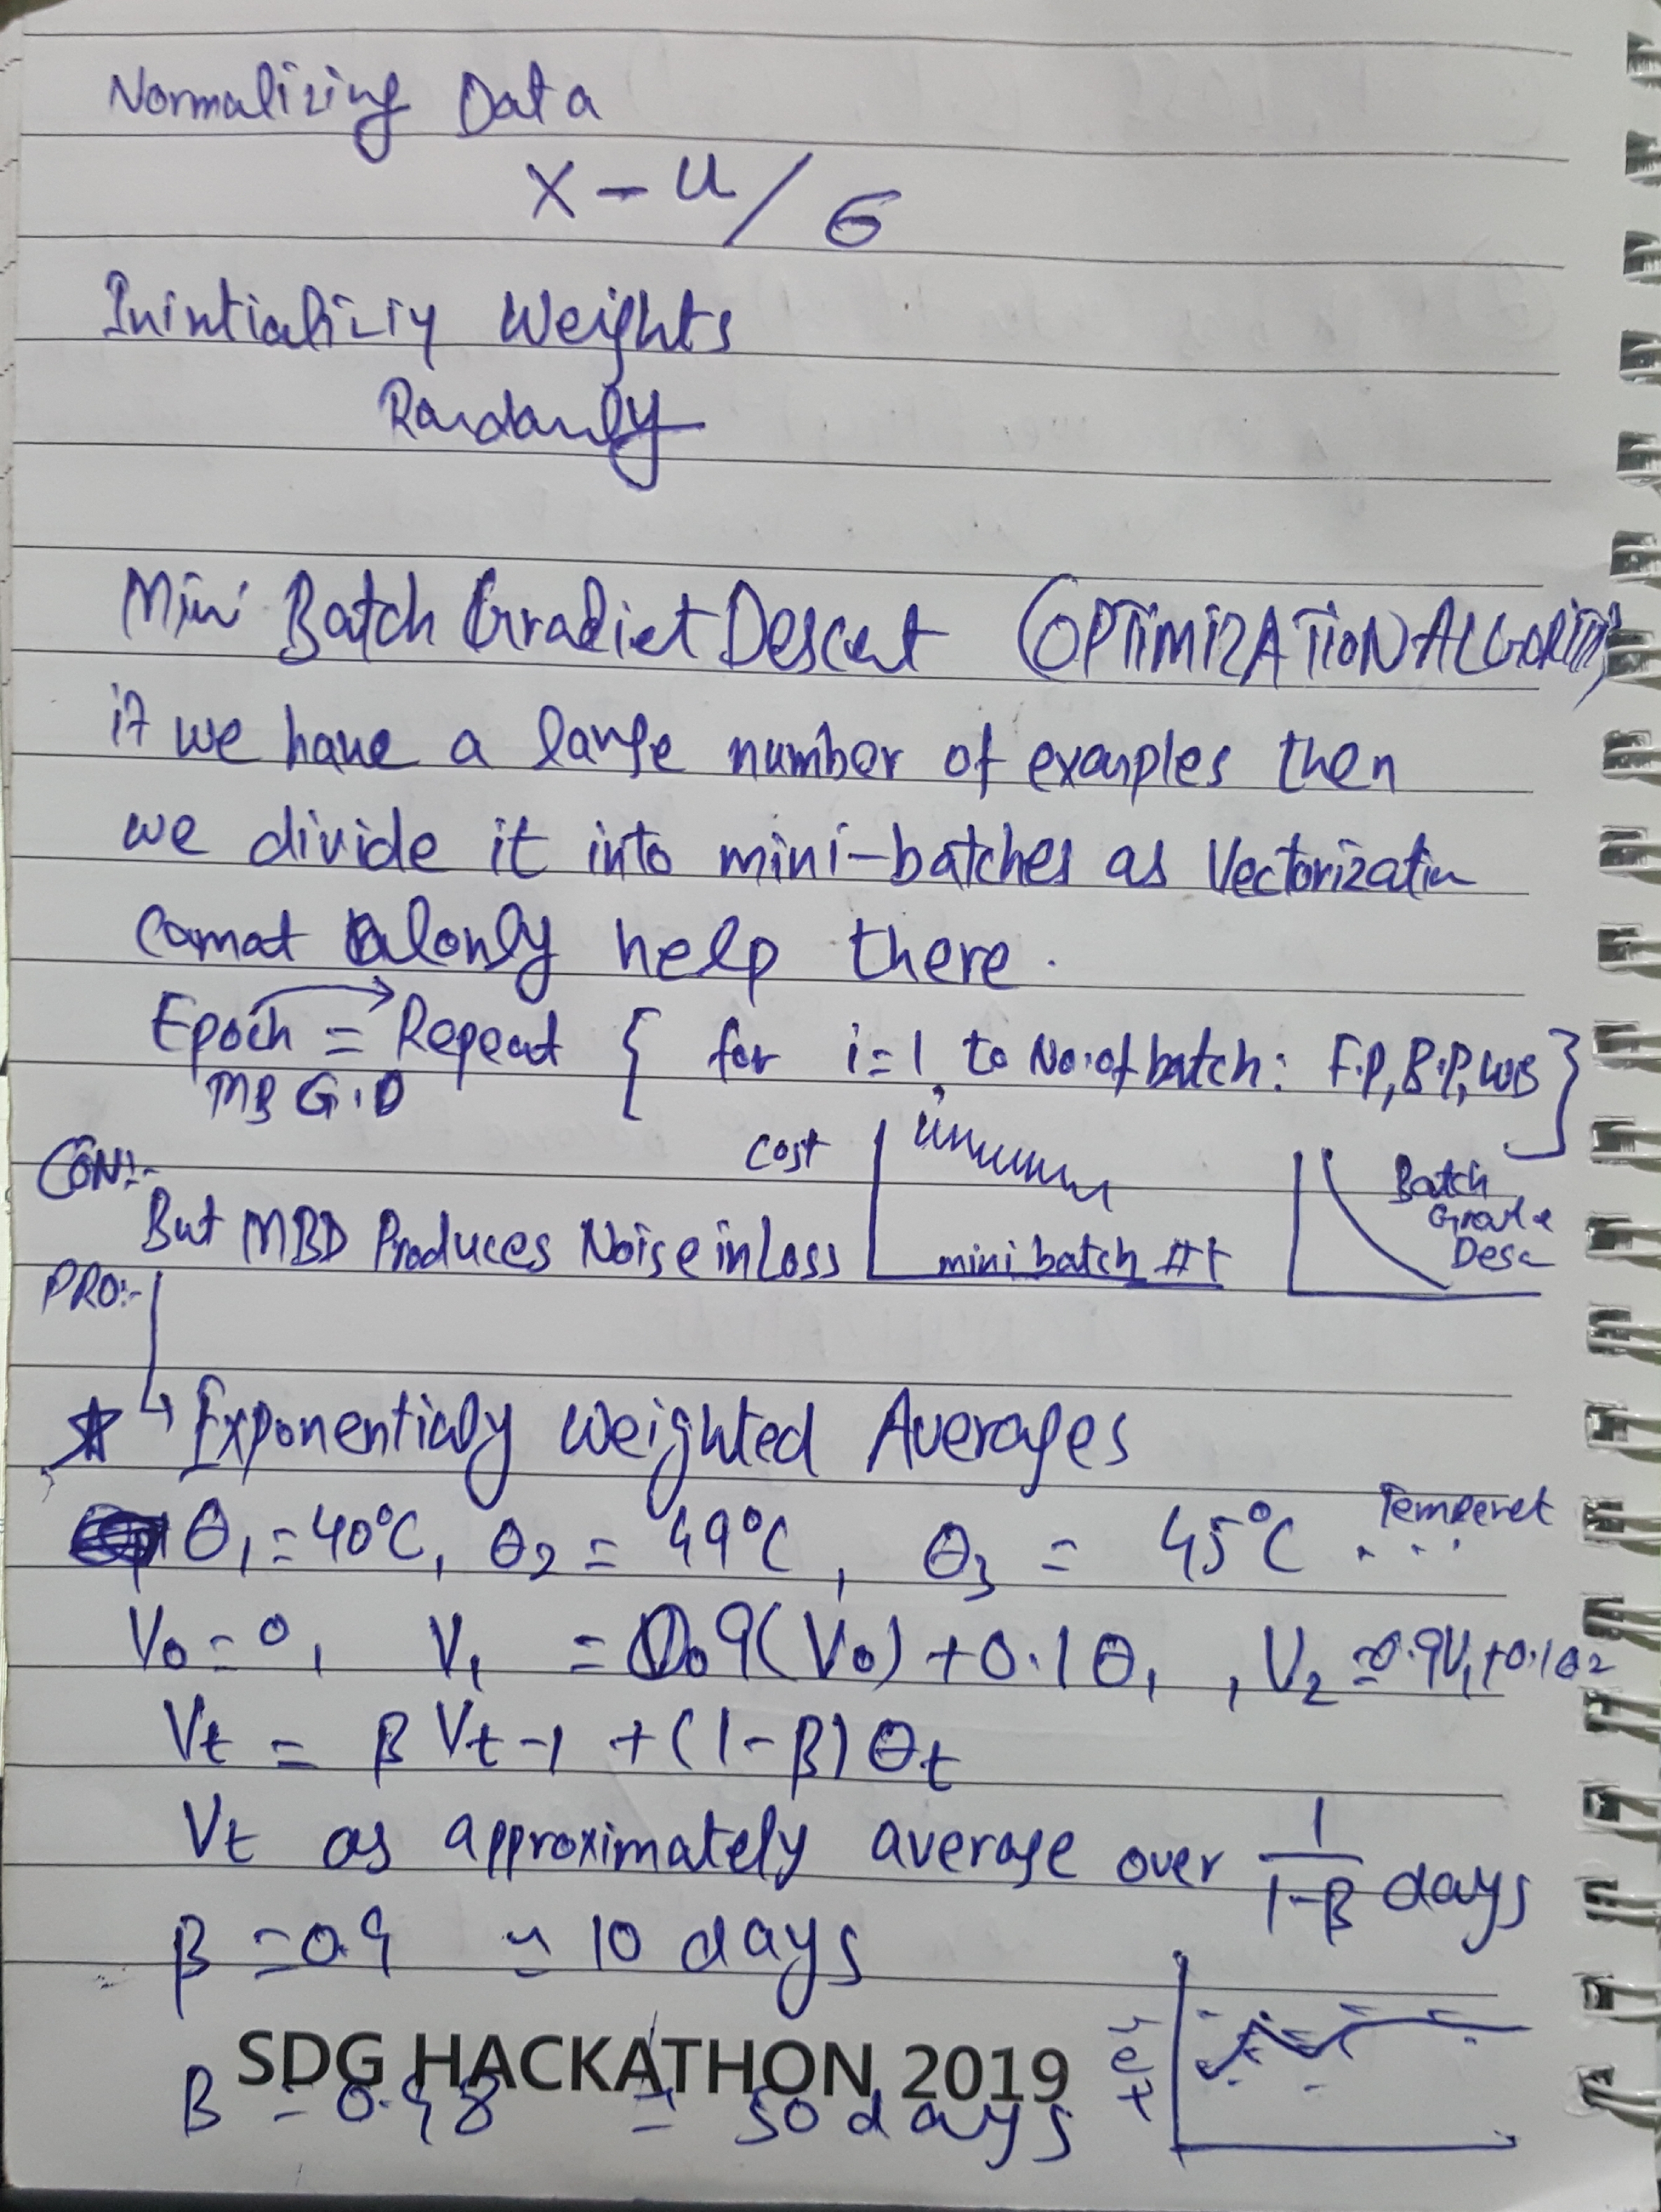 Normalizing Data
X - u / σ
Inintializiy Weights
Randomly
Mini Batch Gradiet Descent (OPTIMIZATION ALGORITM)
if we have a large number of examples then
we divide it into mini-batches as Vectorization
cannot alonly help there.
Epoch = Repeat { for i=1 to No. of batch: F.P, B.P, WB }
MB G.D
CON:-
cost
Batch
Grade
Desc
But MBD Produces Noise in Loss
mini batch #t
PRO:-
Exponentialy Weighted Averages
Temperet
θ1 = 40°C, θ2 = 49°C, θ3 = 45°C ....
V0 = 0, V1 = 0.9(V0) + 0.1 θ1, V2 = 0.9V1 + 0.1θ2
Vt = β Vt-1 + (1-β) θt
Vt as approximately average over 1/1-β days
β = 0.9 ≃ 10 days
SDG HACKATHON 2019
β = 0.98 = 50 days